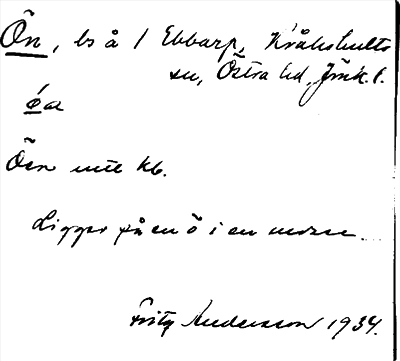 Ön, ls å 1 Ebbarp, Kråkshults
sn, Östra hd, Jönk. l.
Öen utt kb.
Ligger på en ö i en mosse.
Fritz Andersson 1934.